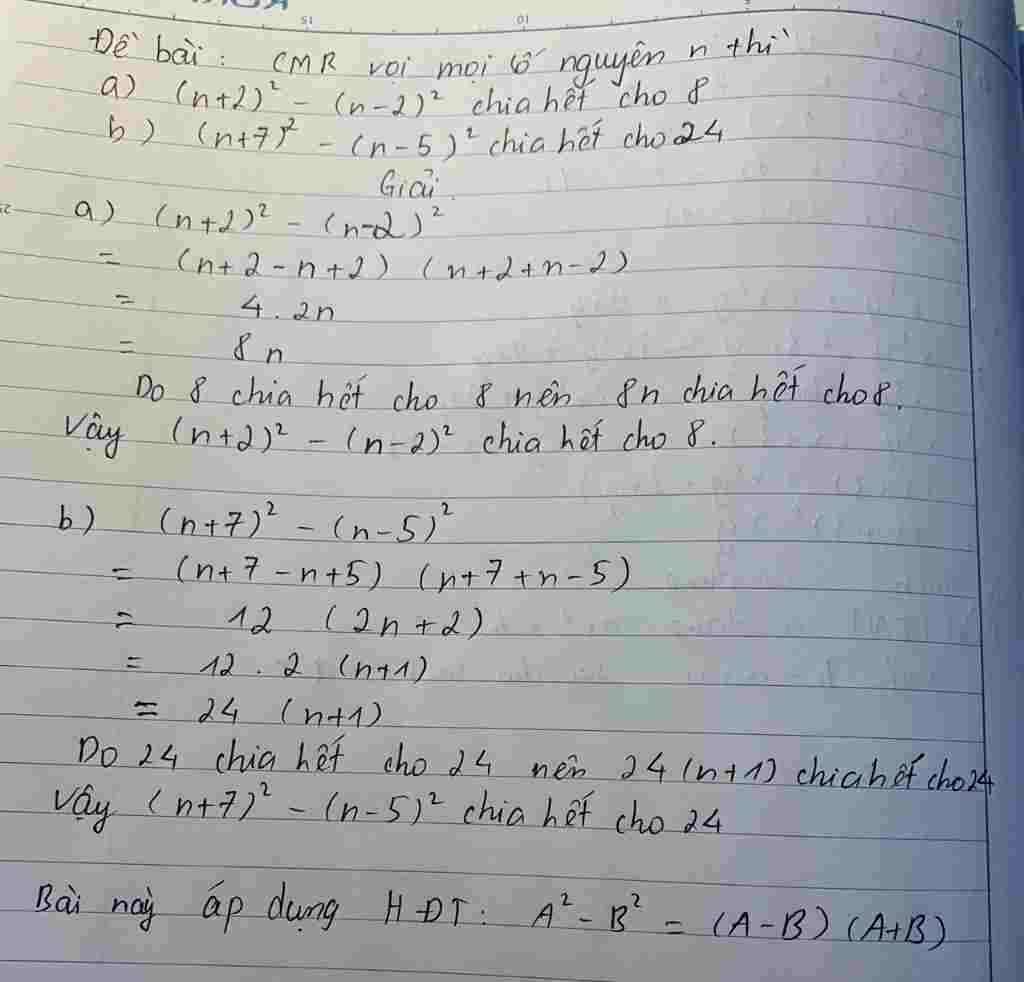 Đề bài: CMR với mọi số nguyên n thì
a) (n+2)² - (n-2)² chia hết cho 8
b) (n+7)² - (n-5)² chia hết cho 24
Giải
a) (n+2)² - (n-2)²
= (n+2-n+2) (n+2+n-2)
= 4.2n
= 8n
Do 8 chia hết cho 8 nên 8n chia hết cho 8.
Vậy (n+2)² - (n-2)² chia hết cho 8.
b) (n+7)² - (n-5)²
= (n+7-n+5) (n+7+n-5)
= 12 (2n+2)
= 12.2 (n+1)
= 24 (n+1)
Do 24 chia hết cho 24 nên 24(n+1) chia hết cho 24
Vậy (n+7)² - (n-5)² chia hết cho 24
Bài này áp dụng HĐT: A² - B² = (A-B) (A+B)